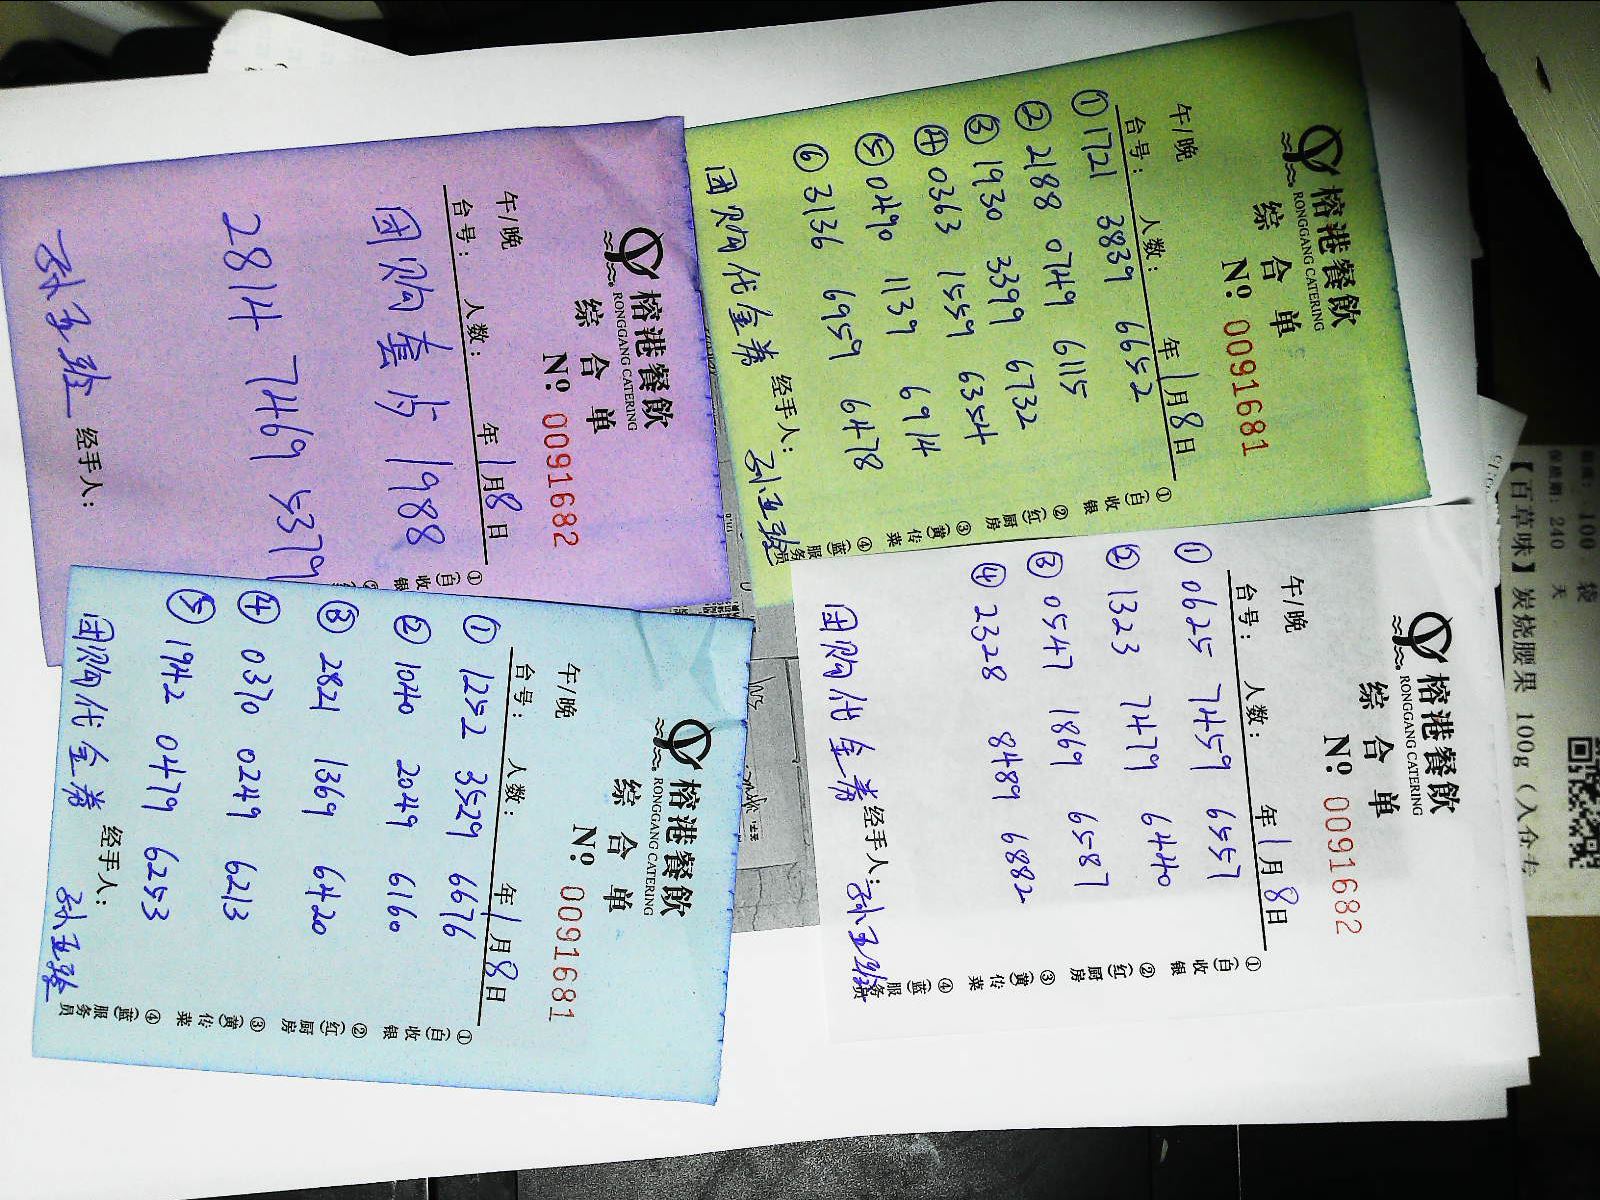 榕港餐飲
RONGGANG CATERING
综合单
Nº 0091681
午/晚
台号: 人数: 年1月8日
① 1721 3839 6652
② 2188 0749 6115
③ 1930 3399 6732
④ 0363 1559 6354
⑤ 0490 1139 6914
⑥ 3136 6959 6478
团购代金券 经手人:
①(白)收银 ②(红)厨房 ③(黄)传菜 ④(蓝)服务员
榕港餐飲
RONGGANG CATERING
综合单
Nº 0091682
午/晚
台号: 人数: 年1月8日
① 0625 7459 6557
② 1323 7479 6440
③ 0547 1869 6587
④ 2328 8489 6882
团购代金券 经手人:
①(白)收银 ②(红)厨房 ③(黄)传菜 ④(蓝)服务员
榕港餐飲
RONGGANG CATERING
综合单
Nº 0091682
午/晚
台号: 人数: 年1月8日
团购套内 1988
2814 7469 5379
经手人:
①(白)收银
榕港餐飲
RONGGANG CATERING
综合单
Nº 0091681
午/晚
台号: 人数: 年1月8日
① 1252 3529 6676
② 1040 2049 6160
③ 2821 1369 6420
④ 0370 0249 6213
⑤ 1942 0479 6253
团购代金券 经手人:
①(白)收银 ②(红)厨房 ③(黄)传菜 ④(蓝)服务员
100 袋
保质期: 240 天
【百草味】炭烧腰果 100g（入仓专